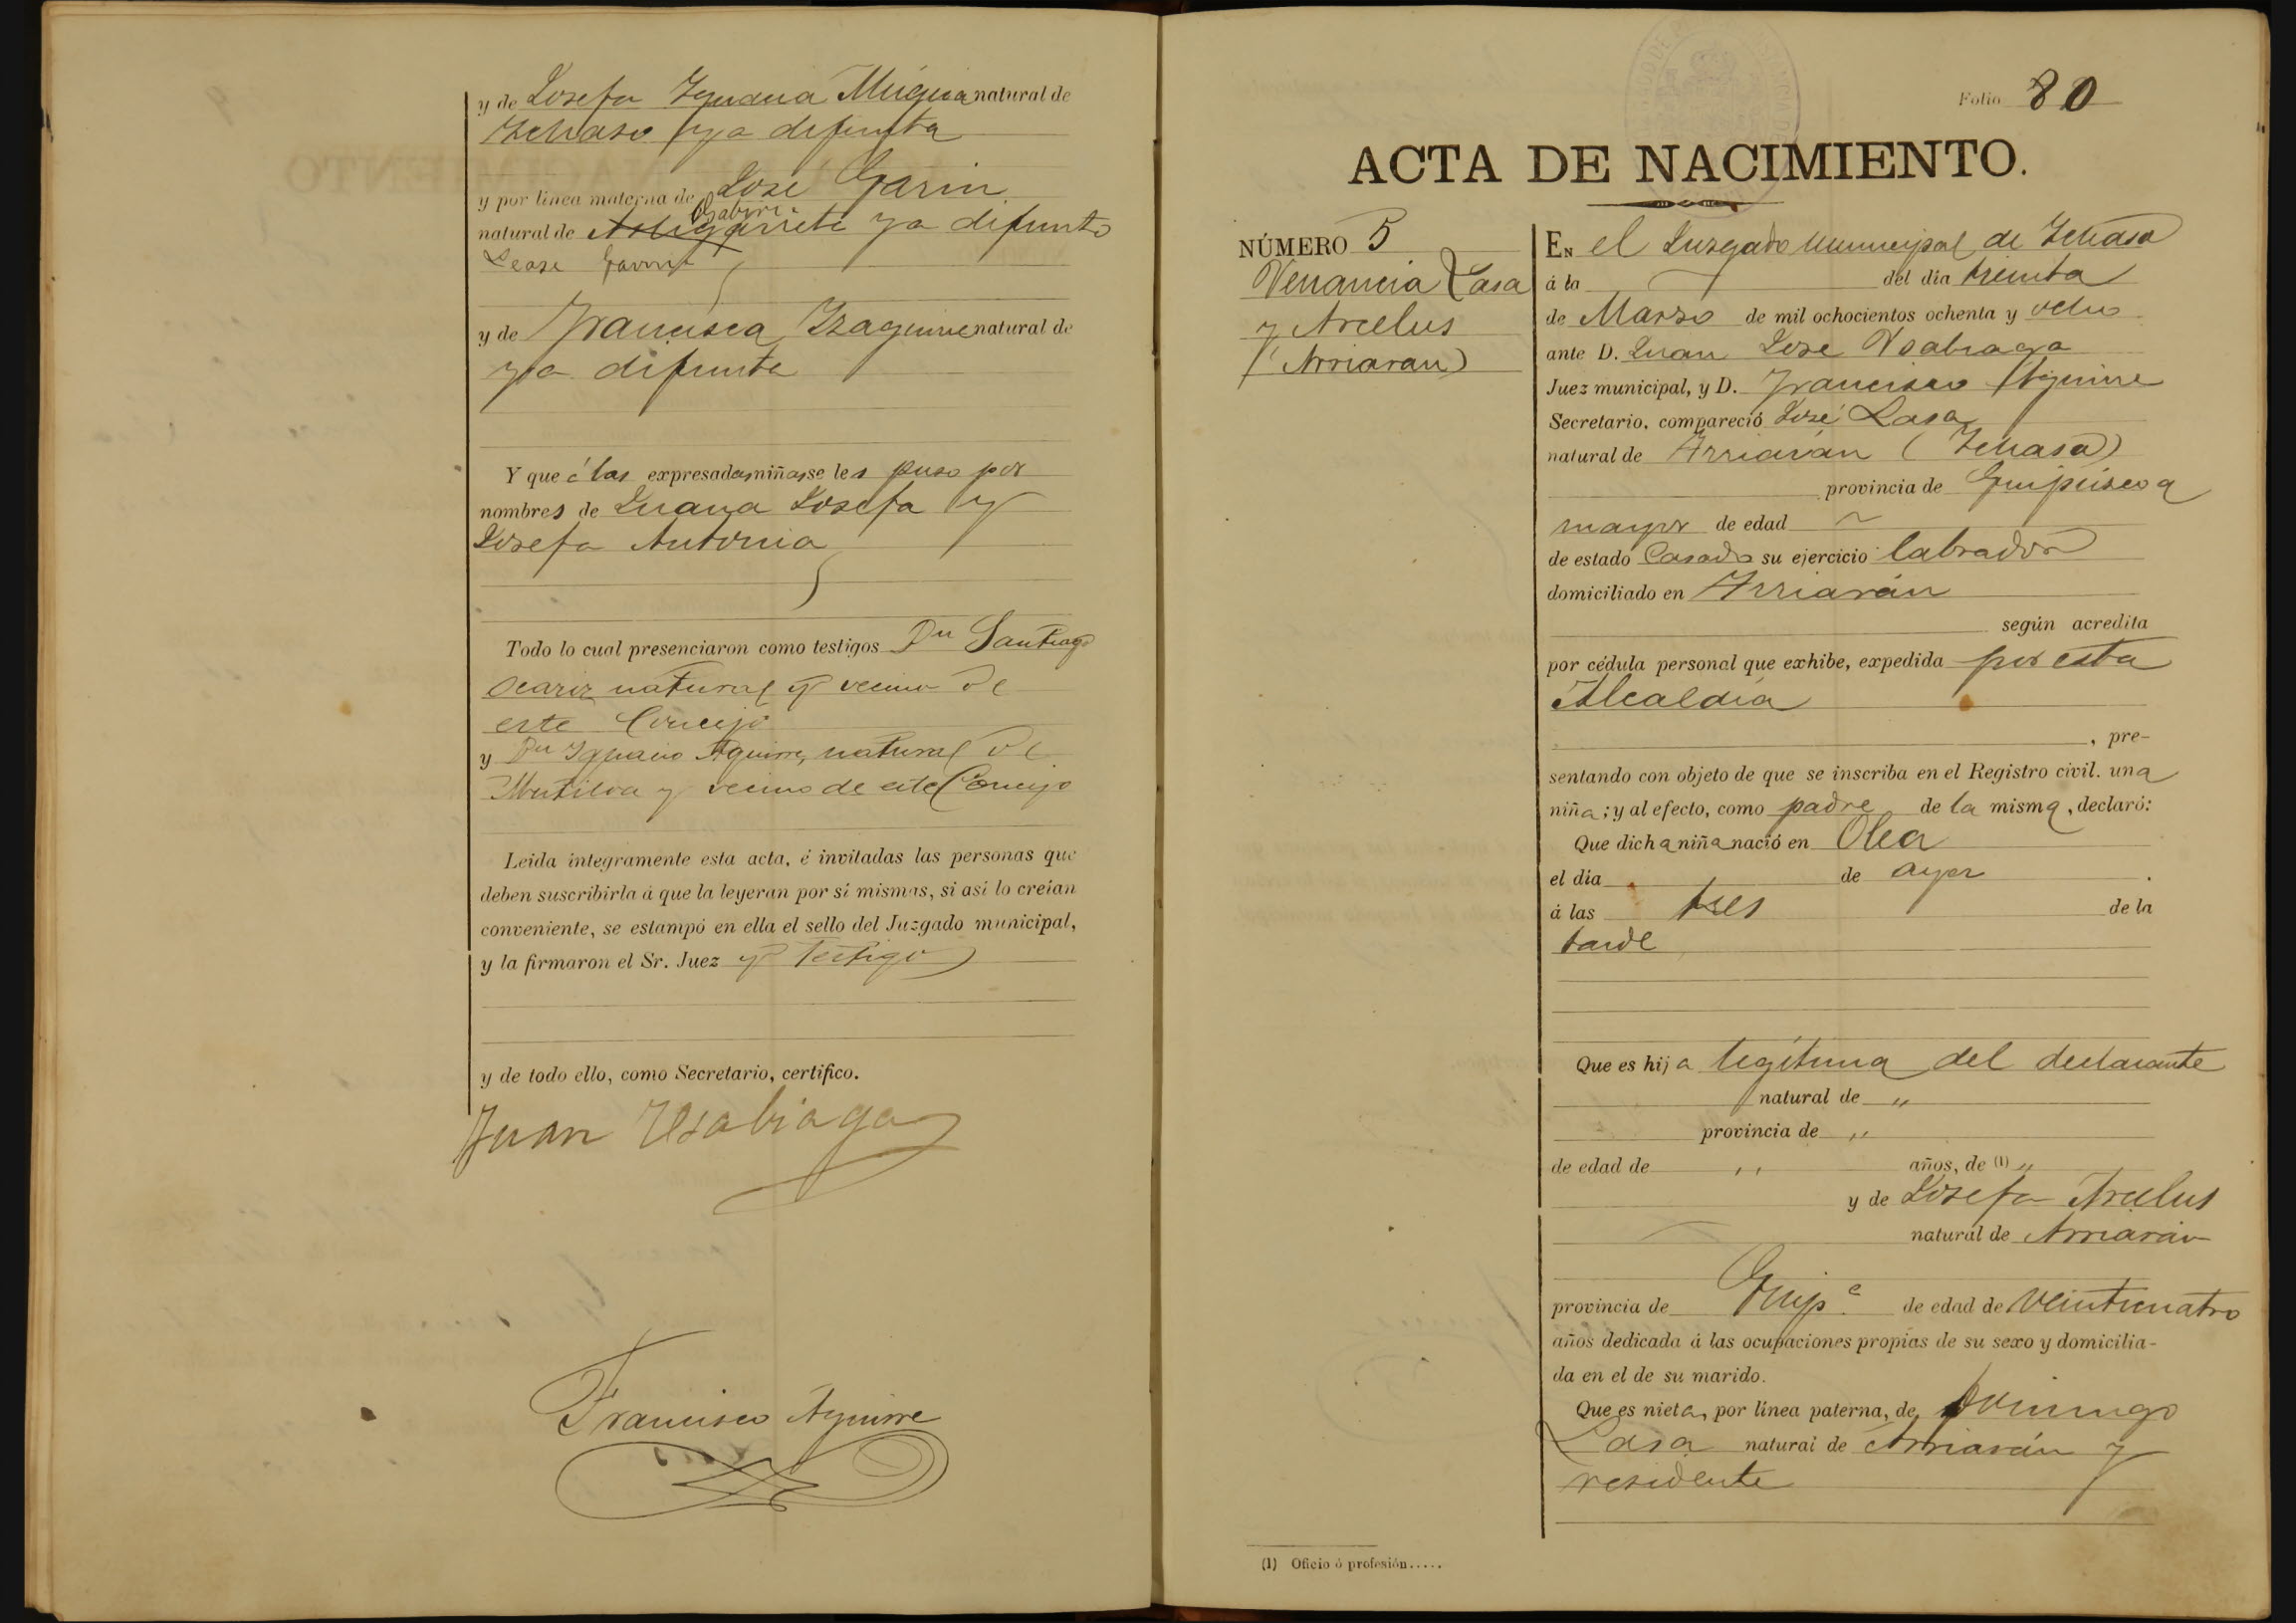 y de Josefa Ygnacia Múgica natural de
Ychaso ya difunta
y por línea materna de José Garin
Gabiri
natural de Astigarreta ya difunto
Lease Gaviri
y de Francisca Yzaguirre natural de
ya difunta
Y que á las expresadas niñas se les puso por
nombres de Juana Josefa y
Josefa Antonia
Todo lo cual presenciaron como testigos Dn Santiago
Ocariz natural y vecino de
este Concejo
y Dn Ygnacio Aguirre, natural de
Mutiloa y vecino de este Concejo
Leida íntegramente esta acta, é invitadas las personas que
deben suscribirla á que la leyeran por sí mismas, si así lo creían
conveniente, se estampó en ella el sello del Juzgado municipal,
y la firmaron el Sr. Juez y testigo
y de todo ello, como Secretario, certifico.
Juan Usabiaga
Francisco Aguirre
Folio 80
ACTA DE NACIMIENTO.
NÚMERO 5
Venancia Lasa
y Arcelus
(Arriaran)
EN el Juzgado Municipal de Ychaso
á la del día treinta
de Marzo de mil ochocientos ochenta y ocho
ante D. Juan José Usabiaga
Juez municipal, y D. Francisco Aguirre
Secretario, compareció José Lasa
natural de Arriarán (Ychaso)
provincia de Guipúscoa
mayor de edad
de estado Casado su ejercicio labrador
domiciliado en Arriarán
según acredita
por cédula personal que exhibe, expedida por esta
Alcaldía
, pre-
sentando con objeto de que se inscriba en el Registro civil. una
niña; y al efecto, como padre de la misma, declaró:
Que dicha niña nació en Olea
el día de ayer .
á las tres de la
tarde
Que es hija legítima del declarante
natural de "
provincia de "
de edad de " años, de (1) "
y de Josefa Arcelus
natural de Arriarán
provincia de Guip.ª de edad de veinticuatro
años dedicada á las ocupaciones propias de su sexo y domicilia-
da en el de su marido.
Que es nieta, por línea paterna, de Domingo
Lasa natural de Arriarán y
residente
(1) Oficio ó profesión.....